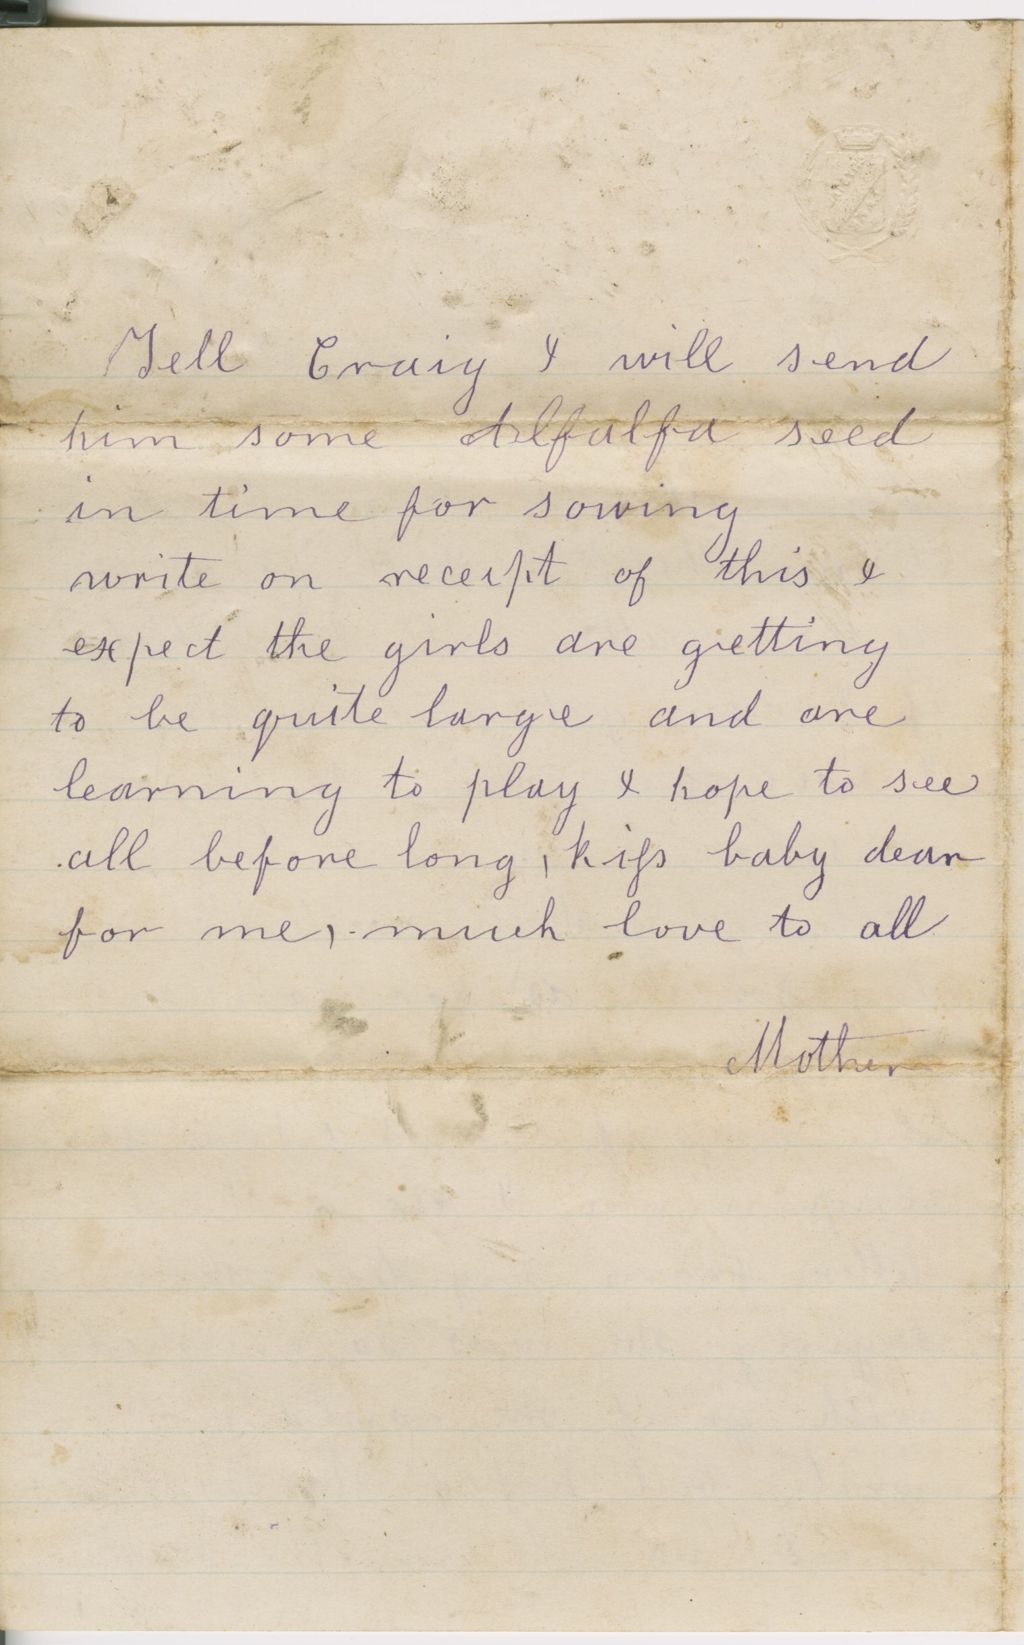 Tell Craig I will send
him some Alfalfa seed
in time for sowing
write on receipt of this I
expect the girls are getting
to be quite large and are
learning to play I hope to see
all before long, kiss baby dear
for me, much love to all
Mother